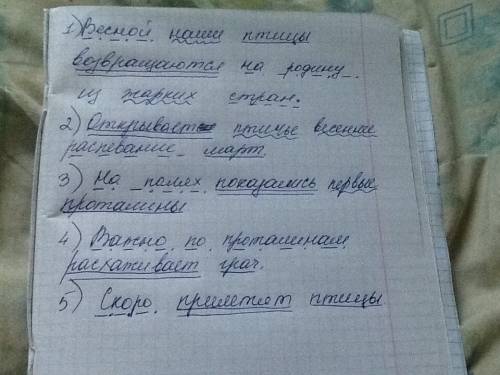 1) Весной наши птицы
возвращаются на родину
из жарких стран.
2) Открывает птичье весеннее
распевание март.
3) На полях показались первые
проталины
4) Важно по проталинам
расхаживает грач.
5) Скоро прилетят птицы